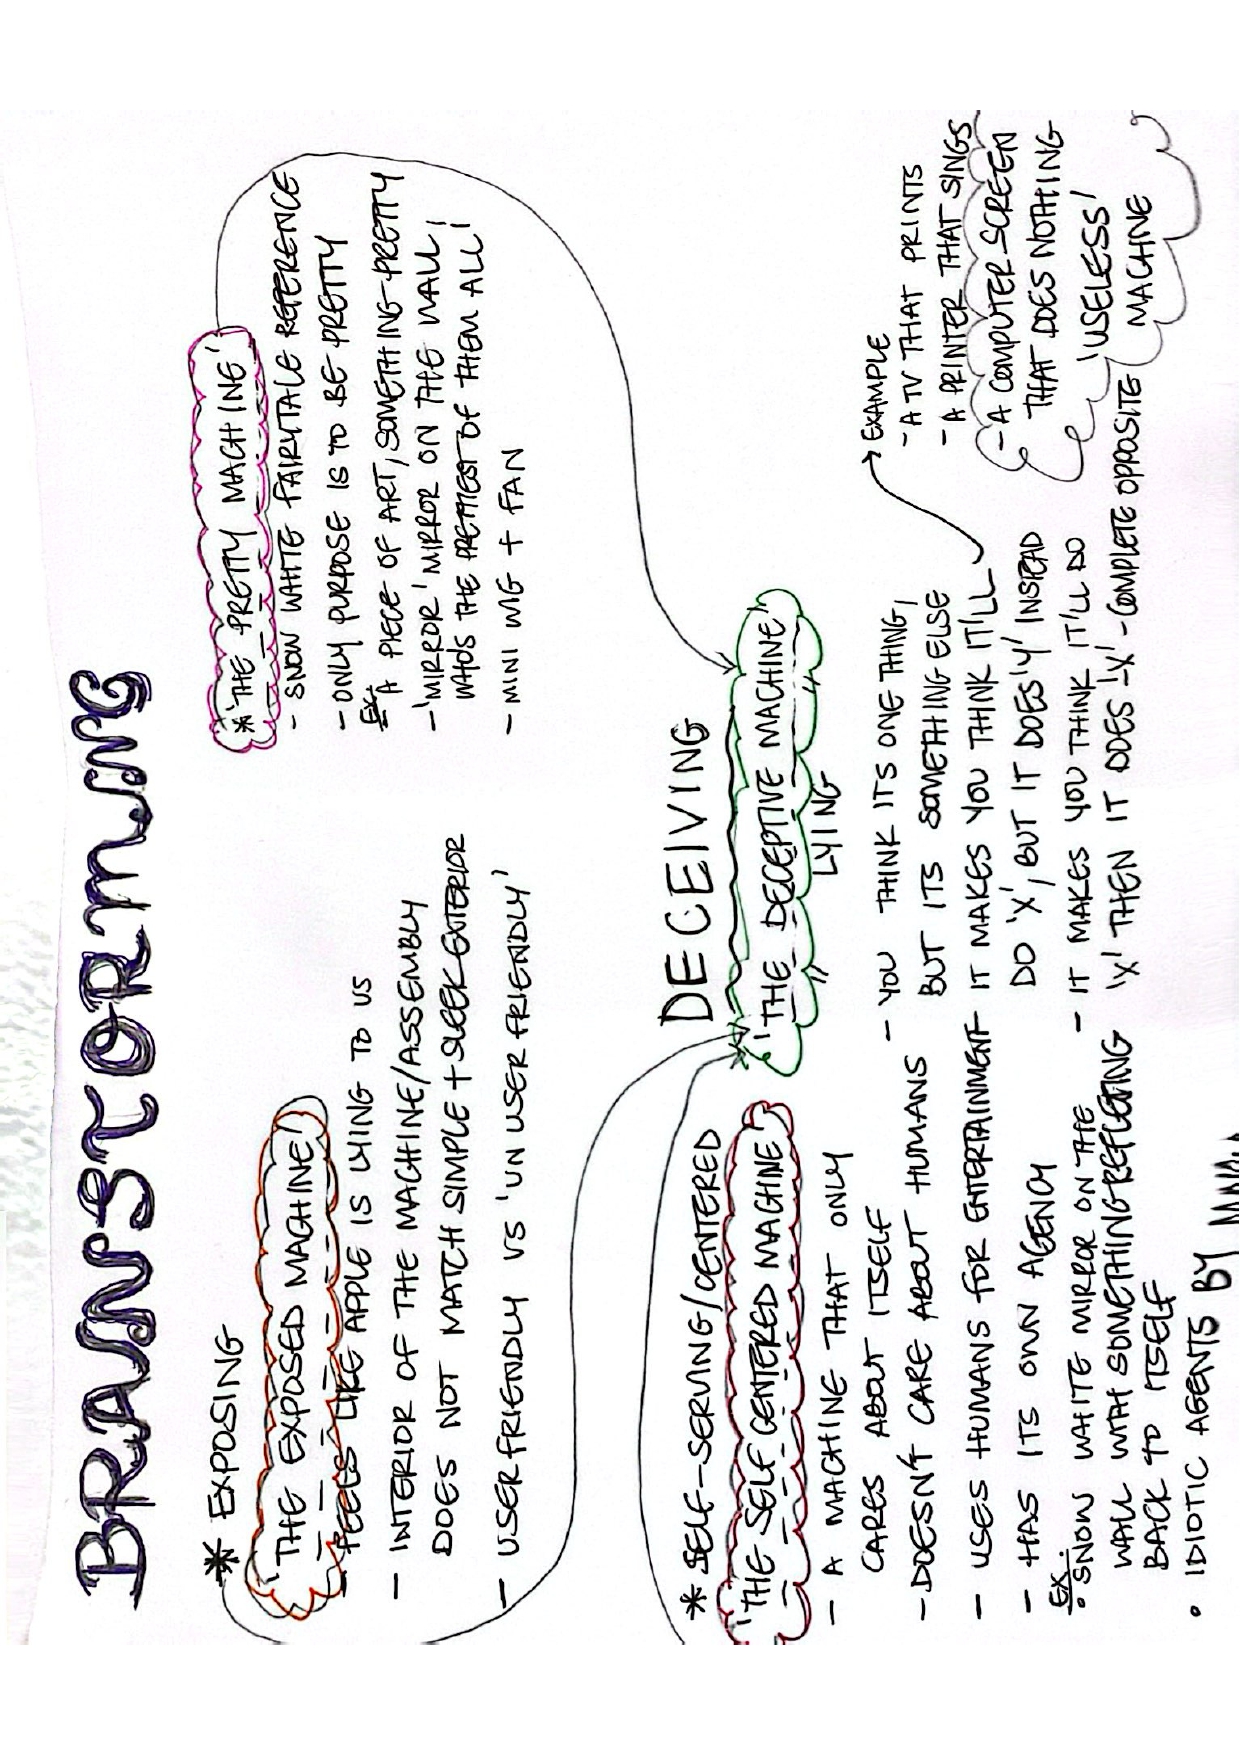 BRAINSTORMING
* EXPOSING
'THE EXPOSED MACHINE'
- FEELS LIKE APPLE IS LYING TO US
- INTERIOR OF THE MACHINE/ASSEMBLY
DOES NOT MATCH SIMPLE + SLEEK EXTERIOR
- USER FRIENDLY VS 'UN USER FRIENDLY'
* 'THE PRETTY MACHINE'
- SNOW WHITE FAIRYTALE REFERENCE
- ONLY PURPOSE IS TO BE PRETTY
EX. A PIECE OF ART, SOMETHING PRETTY
- 'MIRROR 'MIRROR ON THE WALL,
WHO'S THE PRETTIEST OF THEM ALL'
- MINI WIG + FAN
* SELF-SERVING/CENTERED
'THE SELF CENTERED MACHINE'
- A MACHINE THAT ONLY
CARES ABOUT ITSELF
- DOESN'T CARE ABOUT HUMANS
- USES HUMANS FOR ENTERTAINMENT
- HAS ITS OWN AGENCY
EX.
• SNOW WHITE MIRROR ON THE
WALL WITH SOMETHING REFLECTING
BACK TO ITSELF
• IDIOTIC AGENTS BY
DECEIVING
* 'THE DECEPTIVE MACHINE'
" LYING "
- YOU THINK ITS ONE THING,
BUT ITS SOMETHING ELSE
IT MAKES YOU THINK IT'LL
DO 'X', BUT IT DOES 'Y' INSTEAD
- IT MAKES YOU THINK IT'LL DO
'X' THEN IT DOES '-X' - COMPLETE OPPOSITE
EXAMPLE
- A TV THAT PRINTS
- A PRINTER THAT SINGS
- A COMPUTER SCREEN
THAT DOES NOTHING
'USELESS'
MACHINE